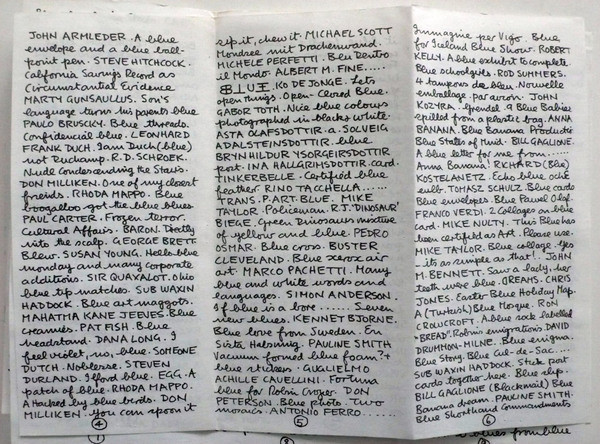 JOHN ARMLEDER. A blue
envelope and a blue ball-
point pen. STEVE HITCHCOCK.
California Savings Record as
Circumstantial Evidence
MARTY GUNSAULLUS. Son's
language turns his parents blue
PAULO BRUSCKY. Blue threads.
Confidencial blue. LEONHARD
FRANK DUCH. I am Duch (blue)
not Duchamp. R.D. SCHROEK.
Nude Condescending the Stairs.
DON MILLIKEN. One of my closest
friends. RHODA MAPPO. Blue
boogalloo got the blue blues
PAUL CARTER. Frozen terror.
Cultural Affairs. BARON. Directly
into the scalp. GEORGE BRETT.
Blew. SUSAN YOUNG. Hello blue
monday and many corporate
additions. SIR QUAXALOT. Ohio
blue tip matches. SUB WAXIN
HADDOCK. Blue art maggots.
MAHATMA KANE JEEVES. Blue
crannies. PAT FISH. Blue
headstand. DANA LONG. I
feel violet, no, blue. SOMEONE
DUTCH. Noblesse. STEVEN
DURLAND. I ford blue. EGG. A
patch of blue. RHODA MAPPO.
Attacked by blue birds. DON
MILLIKEN. You can spoon it
4
sip it, chew it. MICHAEL SCOTT
Mondsee mit Drachenwand.
MICHELE PERFETTI. Blu Dentro
il Mondo. ALBERT M. FINE.....
BLUE. KO DE JONGE. Lets
open things. Open-Closed Blue.
GABOR TOTH. Nice blue colours
photographed in black & white.
ASTA OLAFSDOTTIR. a. SOLVEIG
ADALSTEINSDOTTIR. blue
BRYNHILDUR YSORGEIRSDOTTIR
port. INA HALLGRIMSDOTTIR. card.
TINKERBELLE. Certified blue
feather. RINO TACCHELLA......
TRANS. P. ART. BLUE. MIKE
TAYLOR. Policeman. R.J. 'DINOSAUR'
BIEGE. Green Dinosaurs mixture
of yellow and blue. PEDRO
OSMAR. Blue cross. BUSTER
CLEVELAND. Blue xerox air
art. MARCO PACHETTI. Many
blue and white words and
languages. SIMON ANDERSON.
If blue is a bot ...... Seven
new blues. KENNET BJORNE.
Blue love from Sweden. En
Sista Halsning. PAULINE SMITH
Vacuum formed blue foam ?+
blue stickers. GUGLIELMO
ACHILLE CAVELLINI. Fortuna
blue for Robin Crozier. DON
PETERSON. Blue photo. Two
mosaics. ANTONIO FERRO.....
5
Immagine per Vigo. Blue
for Iceland Blue Show. ROBERT
KELLY. A blue exhibit to complete.
Blue schoolgirls. ROD SUMMERS.
4 tampons de bleu. Nouvelle
emballage. par avion. JOHN
KOZYRA. Grendel. 9 Blue Babies
spilled from a plastic bag. ANNA
BANANA. Blue Banana Productio
Blue Stalks of Muid. BILL GAGLIONE.
A blue letter for me from.....
Anna Banana! RICHARD (Blue)
KOSTELANETZ. Echo blue oche
eulb. TOMASZ SCHULZ. Blue cards
Blue envelopes. Blue Pawel Olaf.
FRANCO VERDI. 2 Collages on blue
card. MIKE NULTY. This Blue has
been certified as Art. Please use.
MIKE TAYLOR. Blue collage. Yes
it is as simple as that! JOHN
M. BENNETT. Saw a lady, her
teeth were blue. CREAMS. CHRIS
JONES. Easter Blue Holiday Map.
A (Turkish) Blue Mosque. RON
CROWCROFT. A blue sock labelled
"BREAD". Robins emigrations. DAVID
DRUMMON-MILNE. Blue enigma.
Blue Story. Blue Cul-de-Sac....
SUB WAXIN HADDOCK. Stick post
cards together here. Blue slip.
BILL GAGLIONE (Blackmail) Blue
Banana dream. PAULINE SMITH.
Blue Shorthand Commandments
6
from blue